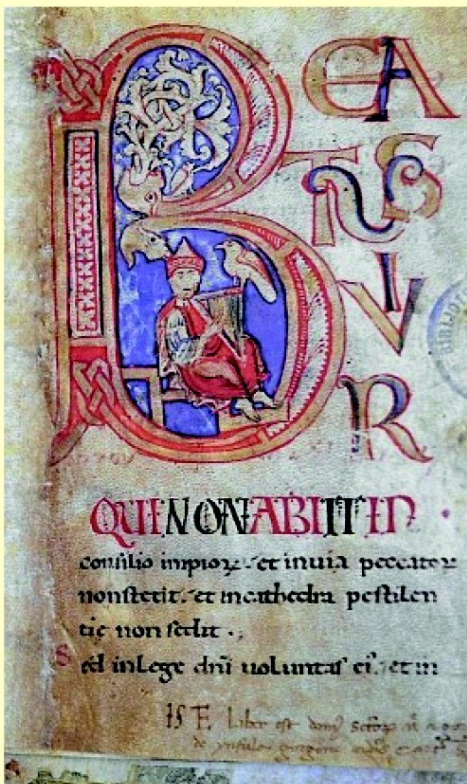 BEA
TUS
VIR
QUI NON ABIIT IN
consilio impioꝝ et in uia peccatoꝝ
non stetit. et in cathedra pestilen
tie non sedit .,
Sed in lege dnī uoluntas ei. et in
iste Liber est
de